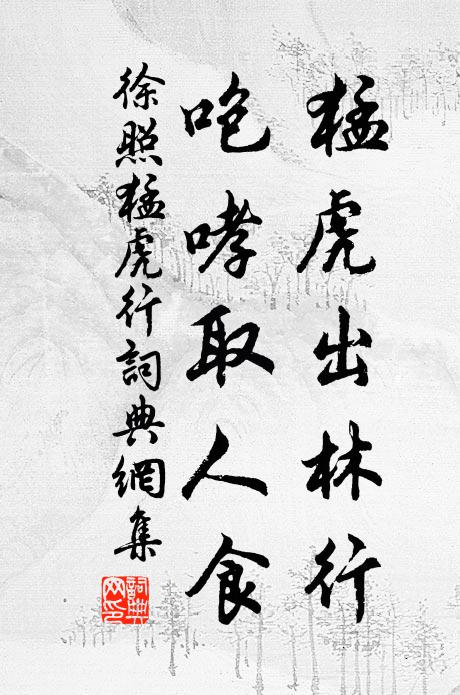 猛虎出林行
咆哮取人食
徐照猛虎行詞典網集
詞典網印